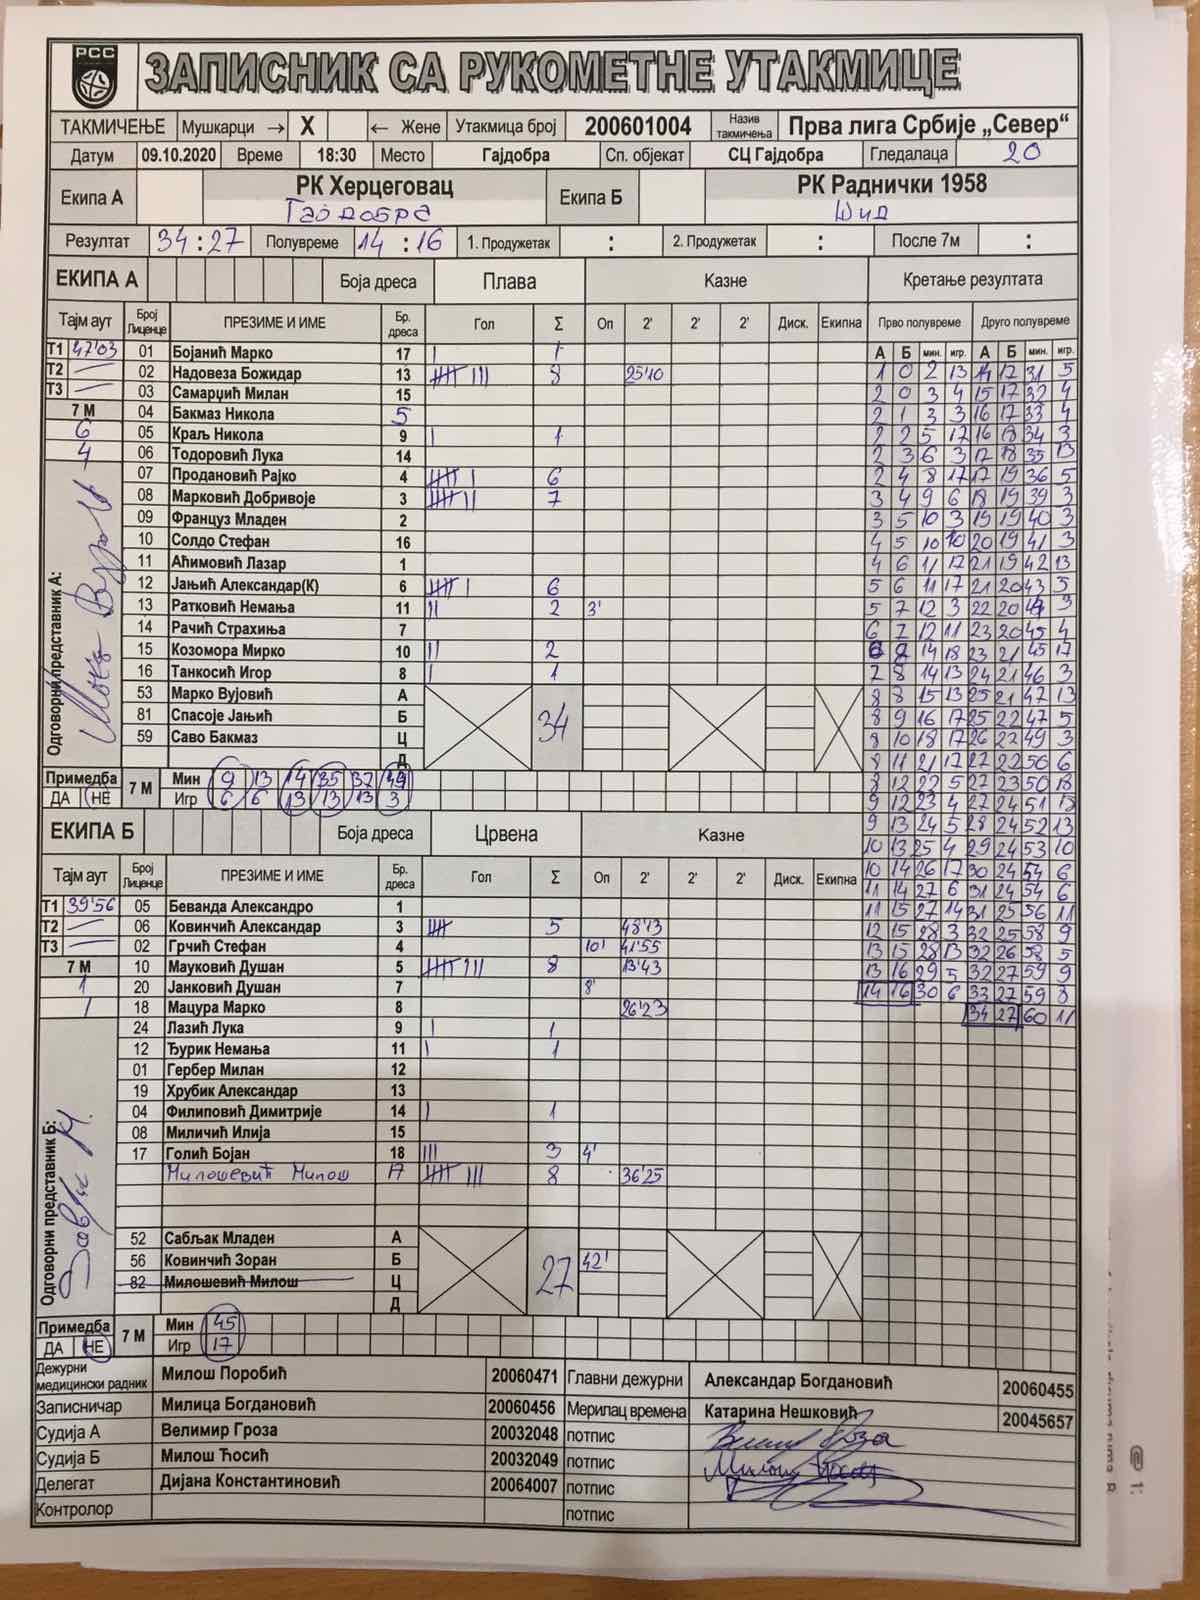 РСС
ЗАПИСНИК СА РУКОМЕТНЕ УТАКМИЦЕ
ТАКМИЧЕЊЕ Мушкарци → X ← Жене Утакмица број 200601004 Назив такмичења Прва лига Србије „Север“
Датум 09.10.2020 Време 18:30 Место Гајдобра Сп. објекат СЦ Гајдобра Гледалаца 20
Екипа А РК Херцеговац Гајдобра Екипа Б РК Раднички 1958 Шид
Резултат 34:27 Полувреме 14:16 1. Продужетак : 2. Продужетак : После 7м :
ЕКИПА А Боја дреса Плава Казне Кретање резултата
Тајм аут Број Лиценце ПРЕЗИМЕ И ИМЕ Бр. дреса Гол Σ Оп 2' 2' 2' Диск. Екипна Прво полувреме Друго полувреме
А Б мин. игр. А Б мин. игр.
Т1 47'03 01 Бојанић Марко 17 I 1
Т2 — 02 Надовеза Божидар 13 IIIII III 8 25'10 1 0 2 13 14 17 31 5
Т3 — 03 Самарџић Милан 15 2 0 3 4 15 17 32 4
7 М 04 Бакмаз Никола 5 2 1 3 3 16 17 33 4
6 05 Краљ Никола 9 I 1 2 2 5 17 16 18 34 3
4 06 Тодоровић Лука 14 2 3 6 3 17 18 35 13
07 Продановић Рајко 4 IIIII I 6 2 4 8 17 17 19 36 5
08 Марковић Добривоје 3 IIIII II 7 3 4 9 6 18 19 39 3
09 Француз Младен 2 3 5 10 3 19 19 40 3
10 Солдо Стефан 16 4 5 10 10 20 19 41 3
11 Аћимовић Лазар 1 4 6 11 17 21 19 42 13
12 Јањић Александар(К) 6 IIIII I 6 5 6 11 17 21 20 43 5
13 Ратковић Немања 11 II 2 3' 5 7 12 3 22 20 44 3
14 Рачић Страхиња 7 6 7 12 11 23 20 45 4
15 Козомора Мирко 10 II 2 14 18 23 21 45 17
16 Танкосић Игор 8 I 1 7 8 14 13 24 21 46 3
53 Марко Вујовић А 34 8 8 15 13 25 21 47 13
81 Спасоје Јањић Б 8 9 16 17 25 22 47 5
59 Саво Бакмаз Ц 8 10 18 17 26 22 49 3
Д 8 11 21 17 27 22 50 6
Одговорни представник А:
Примедба ДА НЕ 7 М Мин 9 13 14 35 37 49 8 12 22 5 27 23 50 18
Игр 6 6 13 13 13 3 9 12 23 4 27 24 51 18
ЕКИПА Б Боја дреса Црвена Казне 9 13 24 5 28 24 52 13
10 13 25 4 29 24 53 10
Тајм аут Број Лиценце ПРЕЗИМЕ И ИМЕ Бр. дреса Гол Σ Оп 2' 2' 2' Диск. Екипна 10 14 26 17 30 24 54 6
11 14 27 6 31 24 54 6
Т1 39'56 05 Беванда Александро 1 11 15 27 14 31 25 56 11
Т2 — 06 Ковинчић Александар 3 IIIII 5 48'13 12 15 28 3 32 25 58 9
Т3 — 02 Грчић Стефан 4 10' 41'55 13 15 28 13 32 26 58 5
7 М 10 Мауковић Душан 5 IIIII III 8 13'43 13 16 29 5 32 27 59 9
1 20 Јанковић Душан 7 8' 14 16 30 6 33 27 59 8
1 18 Мацура Марко 8 26'23 34 27 60 11
24 Лазић Лука 9 I 1
12 Ђурик Немања 11 I 1
01 Гербер Милан 12
19 Хрубик Александар 13
04 Филиповић Димитрије 14 I 1
08 Миличић Илија 15
17 Голић Бојан 18 III 3 4'
Милошевић Милош 17 IIIII III 8 36'25
52 Сабљак Младен А 27
56 Ковинчић Зоран Б 42'
82 Милошевић Милош Ц
Д
Одговорни представник Б:
Примедба ДА НЕ 7 М Мин 45
Игр 17
Дежурни медицински радник Милош Поробић 20060471 Главни дежурни Александар Богдановић 20060455
Записничар Милица Богдановић 20060456 Мерилац времена Катарина Нешковић 20045657
Судија А Велимир Гроза 20032048 потпис
Судија Б Милош Ћосић 20032049 потпис
Делегат Дијана Константиновић 20064007 потпис
Контролор потпис